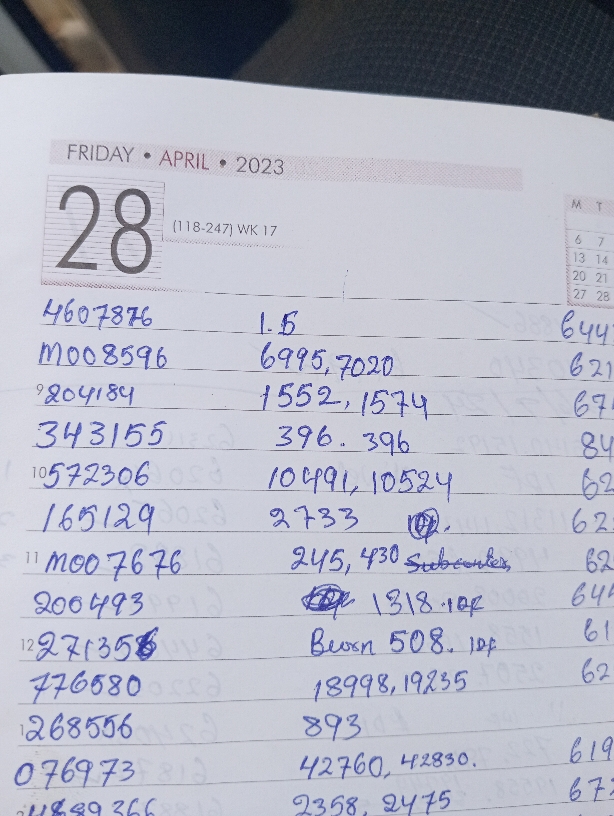 FRIDAY • APRIL • 2023
28 (118-247) WK 17
M T
6 7
13 14
20 21
27 28
4607876 1.5 644
M008596 6995, 7020 621
9 204184 1552, 1574 67
343155 396. 396 84
10 572306 10491, 10524 62
165129 2733 62
11 M007676 245, 430 62
200493 1318. 64
12 271356 508. 61
776580 18998, 19235 62
1 268556 893
076973 42760, 42830. 619
2358, 2475 67